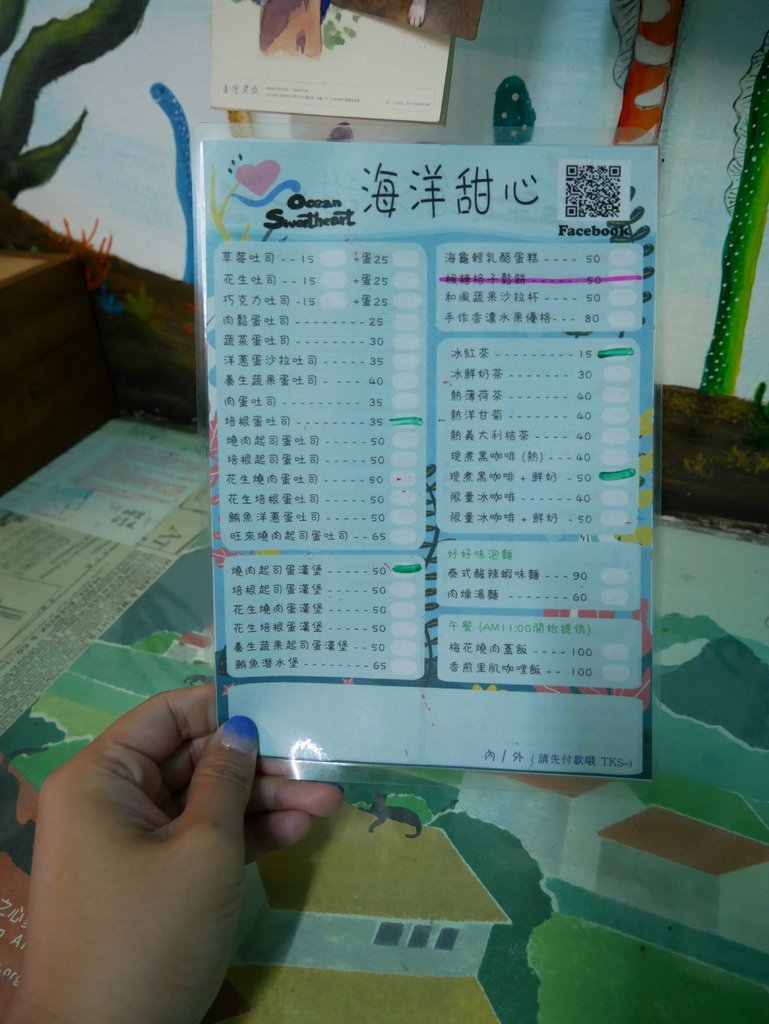 臺灣
Ocean
Sweetheart
海洋甜心
Facebook
草莓吐司 -- 15 +蛋25
花生吐司 -- 15 +蛋25
巧克力吐司 -15 +蛋25
肉鬆蛋吐司 -------- 25
蔬菜蛋吐司 -------- 30
洋蔥蛋沙拉吐司 ---- 35
養生蔬果蛋吐司 ---- 40
肉蛋吐司 ---------- 35
培根蛋吐司 -------- 35
燒肉起司蛋吐司 ---- 50
培根起司蛋吐司 ---- 50
花生燒肉蛋吐司 ---- 50
花生培根蛋吐司 ---- 50
鮪魚洋蔥蛋吐司 ---- 50
旺來燒肉起司蛋吐司 -- 65
燒肉起司蛋漢堡 ---- 50
培根起司蛋漢堡 ---- 50
花生燒肉蛋漢堡 ---- 50
花生培根蛋漢堡 ---- 50
養生蔬果起司蛋漢堡 -- 50
鮪魚潛水堡 -------- 65
海龜輕乳酪蛋糕 ---- 50
楓糖格子鬆餅 ------ 50
和風蔬果沙拉杯 ---- 50
手作香濃水果優格--- 80
冰紅茶 ----------- 15
冰鮮奶茶 --------- 30
熱薄荷茶 --------- 40
熱洋甘菊 --------- 40
熱義大利桔茶 ----- 40
現煮黑咖啡 (熱) --- 40
現煮黑咖啡 + 鮮奶 - 50
限量冰咖啡 ------- 40
限量冰咖啡 + 鮮奶 - 50
好好味泡麵
泰式酸辣蝦味麵 --- 90
肉燥湯麵 -------- 60
午餐 (AM11:00開始提供)
梅花燒肉蓋飯 ---- 100
香煎里肌咖哩飯 -- 100
內 / 外 (請先付款哦 TKS~)